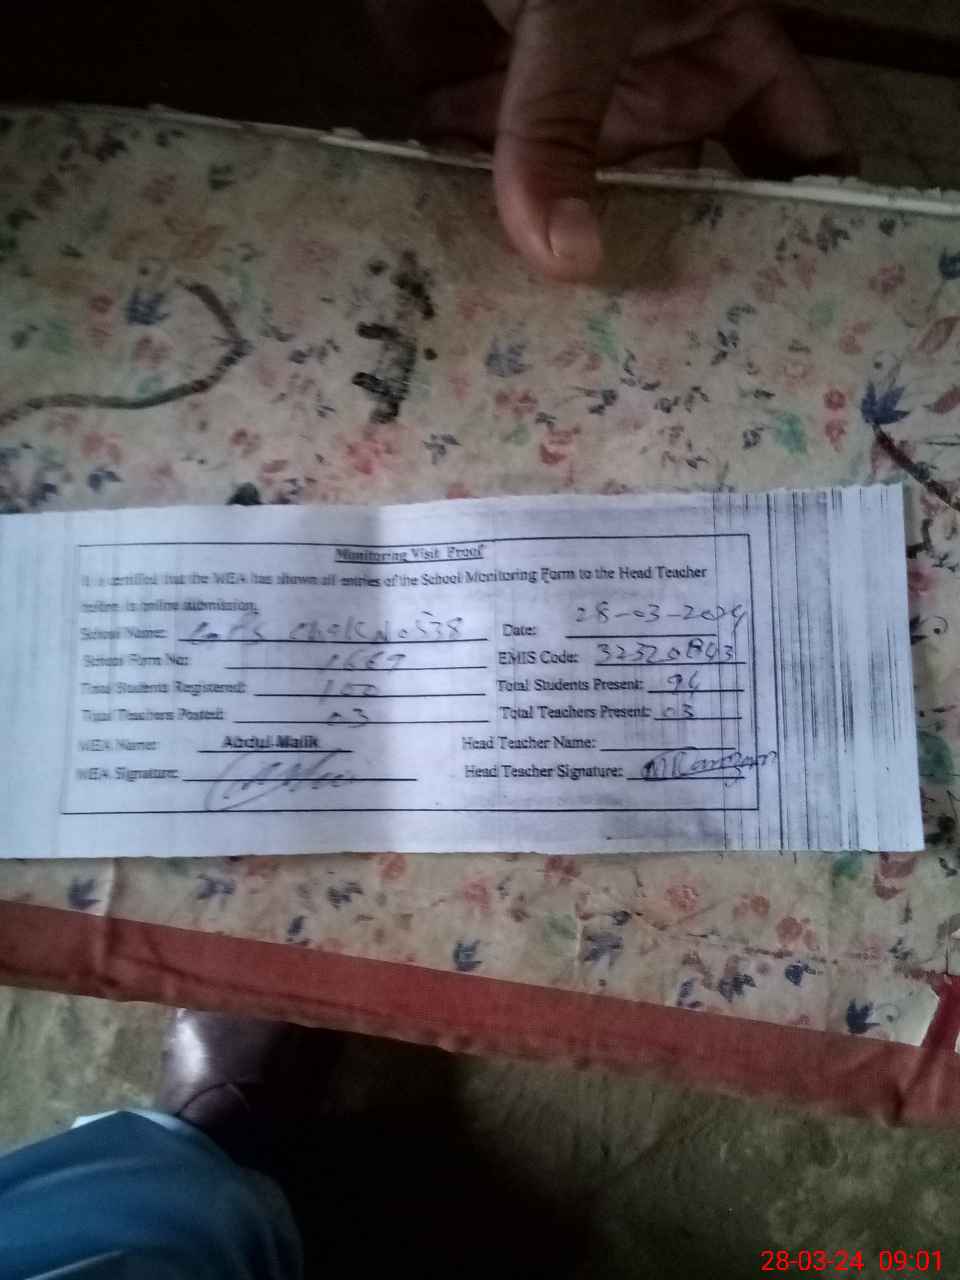 Monitoring Visit Proof
It is certified that the MEA has shown all entries of the School Monitoring Form to the Head Teacher
before is online submission.
School Name: Chak No 538 Date: 28-03-2024
School Form No: 1669 EMIS Code: 32320843
Total Students Registered: 100 Total Students Present: 94
Total Teachers Posted: 03 Total Teachers Present: 03
MEA Name: Abdul Malik Head Teacher Name:
MEA Signature: Head Teacher Signature: MRamzan
28-03-24 09:01